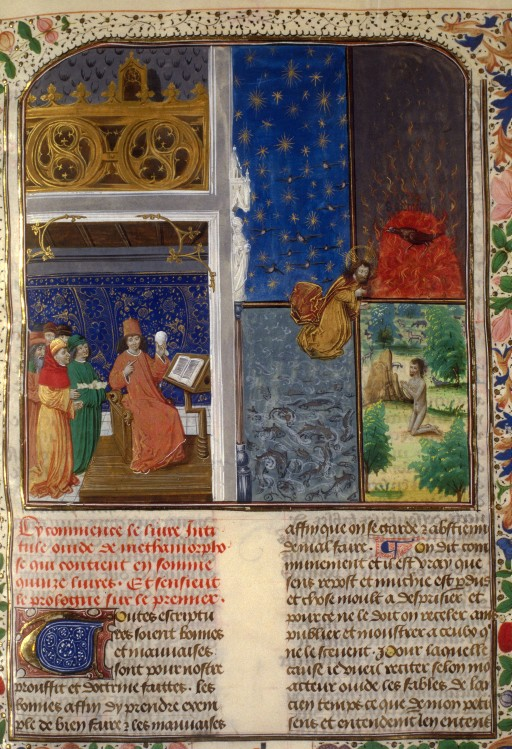 Cy commence le livre Inti
tule ouide de methamorpho
se qui contient en somme
quinze liures. Et sensieut
le prologue sur le premier.
Toutes escriptu
res soient bonnes
et mauuaises
sont pour nostre
prouffit et doctrine faittes. les
bonnes affin dy prendre exem
ple de bien faire & les mauuaises
affin que on se garde & abstiem
de mal faire. On dit com
munement et il est vray que
sens repost et muchie est perdus
et chose moult a desprisier. et
pour ce ne le doit on receler ains
publier et monstrer a ceulx q
ne le sceuent. pour laquelle
cause je vueil reciter selon mo
acteur ouide les fables de lan
cien temps ce que de mon petit
sens et entendement en entens